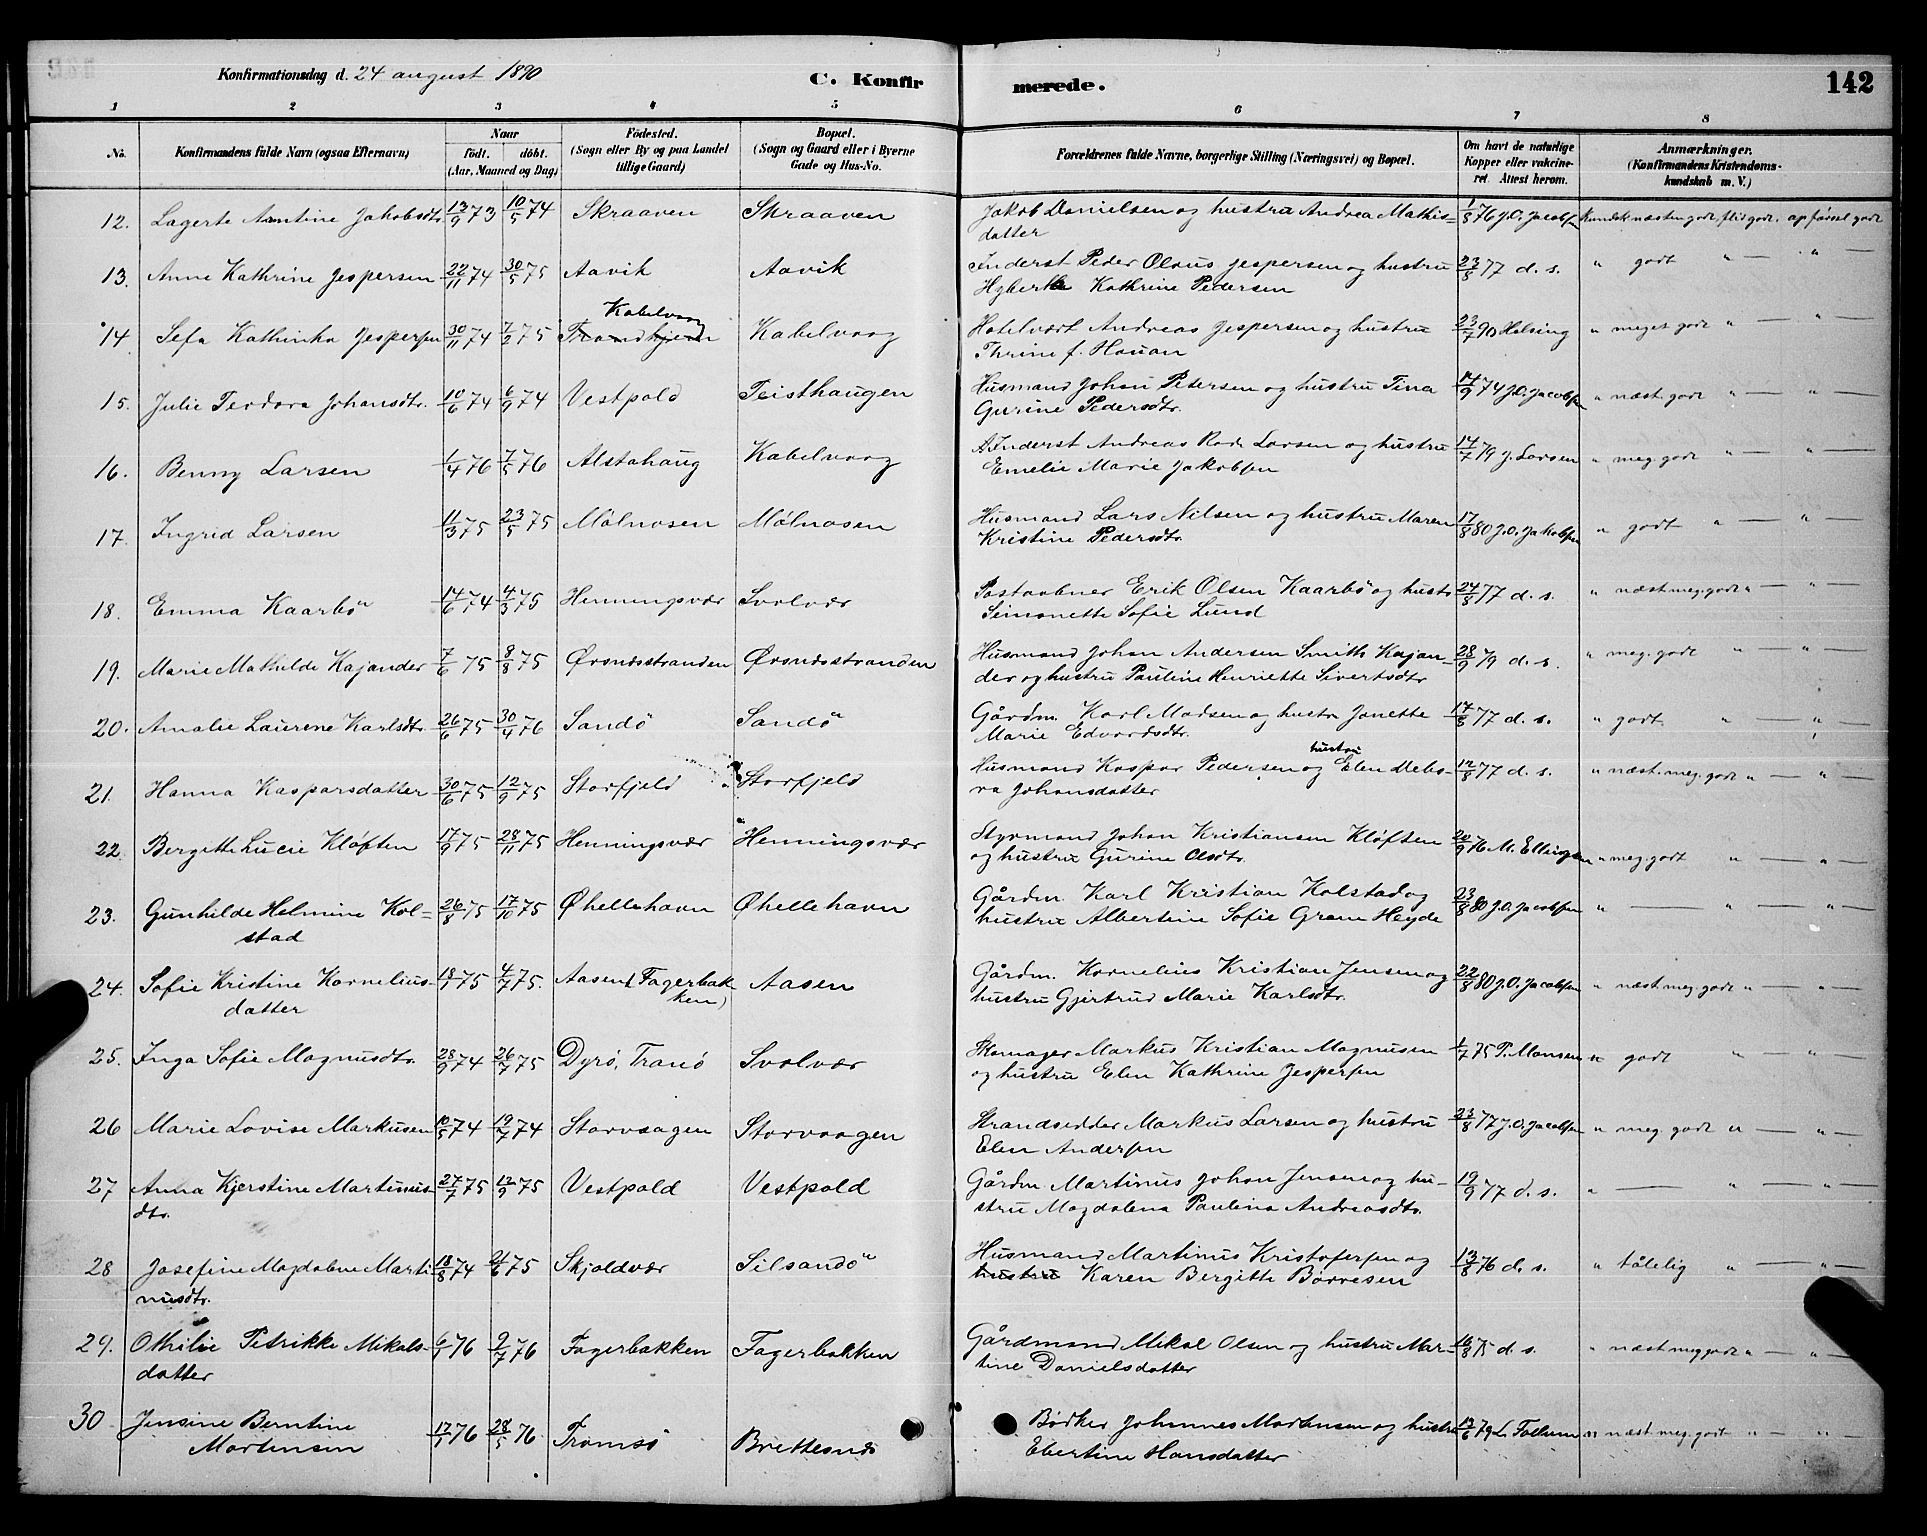 Konfirmationsdag d. 24 august 1890 C. Konfirmerede. 142
1 2 3 4 5 6 7 8
No. Konfirmandens fulde Navn (ogsaa Efternavn) Naar født. døbt. (Aar, Maaned og Dag) Fødested. (Sogn eller By og paa Landet tillige Gaard) Bopæl. (Sogn og Gaard eller i Byerne Gade og Hus-No. Forældrenes fulde Navne, borgerlige Stilling (Næringsvei) og Bopæl. Om havt de naturlige Kopper eller vakcineret. Attest herom. Anmærkninger. (Konfirmandens Kristendomskundskab m. V.)
12. Lagerte Antine Jakobsdtr. 13/9 73 10/5 74 Skraaven Skraaven Jakob Danielsen og hustru Andrea Mathis= 1/8 76 J.O. Jacobsen Kundsk næsten godt, flid godt. opførsel godt
datter
13. Anne Kathrine Jespersen 22/11 74 30/5 75 Aavik Aavik Inderst Peder Olaus Jespersen og hustru 23/8 77 d. s. " godt " — " —
Hyberthe Kathrine Pedersen
Kabelvaag
14 Sefa Kathinka Jespersen 30/11 74 7/2 75 Trondhjem Kabelvaag Hotelvært Andreas Jespersen og hustru 23/7 90 Helsing " meget godt " — " —
Thrine f. Hauan
15. Julie Teodora Johansdtr. 10/6 74 6/9 74 Vestpold Teisthaugen Husmand Johan Petersen og hustru Tina 14/9 74 J.O. Jacobsen " næst. godt " — " —
Gurine Pedersdtr.
16. Benny Larsen 1/4 76 7/5 76 Alstahaug Kabelvaag Inderst Andreas Rod. Larsen og hustru 14/7 79 J. Larsen " meg. godt " — " —
Emelie Marie Jakobsen
17. Ingrid Larsen 11/3 75 23/5 75 Mølnosen Mølnosen Husmand Lars Nilsen og hustru Maren 17/8 80 J.O. Jakobsen " godt " — " —
Kristine Pedersdtr.
18. Emma Kaarbø 14/6 74 4/3 75 Henningsvær Svolvær Postaabner Erik Olsen Kaarbø og hustr 24/8 77 d. s. " næst. meg. godt " — " —
Simonette Sofie Lund
19. Marie Mathilde Kajander 7/6 75 8/8 75 Ørsnesstranden Ørsnesstranden Husmand Johan Andersen Smith Kajan= 28/9 79 d. s. " meg. godt " — " —
der og hustru Pauline Henriette Sivertsdtr
20. Amalie Laurene Karlsdtr. 26/6 75 30/4 76 Sandø Sandø Gårdm. Karl Madsen og hustr Janette 17/8 77 d. s. " godt " — " —
Marie Edvardsdtr.
hustru
21. Hanna Kasparsdatter 30/6 75 12/9 75 Storfjeld Storfjeld Husmand Kaspar Pedersen og Elen Debo- 12/8 77 d. s. " næst. meg. godt " — " —
ra Johansdatter
22. Bergitte Lucie Kløften 17/9 75 28/11 75 Henningsvær Henningsvær Styrmand Johan Kristiansen Kløften 20/9 76 M. Ellingsen " meg. godt " — " —
og hustru Gurine Olsdtr.
23. Gunhilde Helmine Kol= 26/8 75 17/10 75 Øhellehavn Øhellehavn Gårdm. Karl Kristian Kolstad og 23/8 80 J.O. Jacobsen " — " — " —
stad hustru Albertine Sofie Gram Heyde
24. Sofie Kristine Kornelius- 18/1 75 4/7 75. Aasen (Fagerbak= Aasen Gårdm. Kornelius Kristian Jensen og 22/8 80 J.O. Jacobsen " næst. meg. godt " — " —
datter ken) hustru Gjertrud Marie Karlsdtr.
25. Inga Sofie Magnusdtr. 28/9 74 26/7 75 Dyrø, Tranø Svolvær Skomager Markus Kristian Magnusen 1/7 75 P. Monsen " godt " — " —
og hustru Elen Kathrine Jespersen
26 Marie Lovise Markusen 10/5 74 19/7 74 Storvaagen Storvaagen Strandsidder Markus Larsen og hustru 23/8 77 J.O. Jacobsen " meg. godt " — " —
Elen Andersen
27 Anna Kjerstine Martinus- 27/7 75 12/9 75 Vestpold Vestpold Gårdm Martinus Johan Jensen og hu- 19/9 77 d. s. " — " — " —
dtr. stru Magdalena Paulina Andreasdtr.
28 Josefine Magdalene Marti 18/8 74 21/6 75 Skjoldvær Silsandø Husmand Martinus Kristofersen og 13/8 76 d. s. " tålelig " — " —
nusdtr. hustru Karen Bergitte Børresen
29. Othilie Petrikke Mikals- 6/1 76 9/7 76 Fagerbakken Fagerbakken Gårdmand Mikal Olsen og hustru Mar- 16/8 75 d. s. " næst meg godt " — " —
datter tine Danielsdatter
30 Jensine Berntine 17/1 76 28/5 76 Tromsø Brettesnes Bødker Johannes Mortensen og hustru 13/6 79 L. Follum " næst. meg. godt " — " —
Mortensen Ebertine Hansdatter